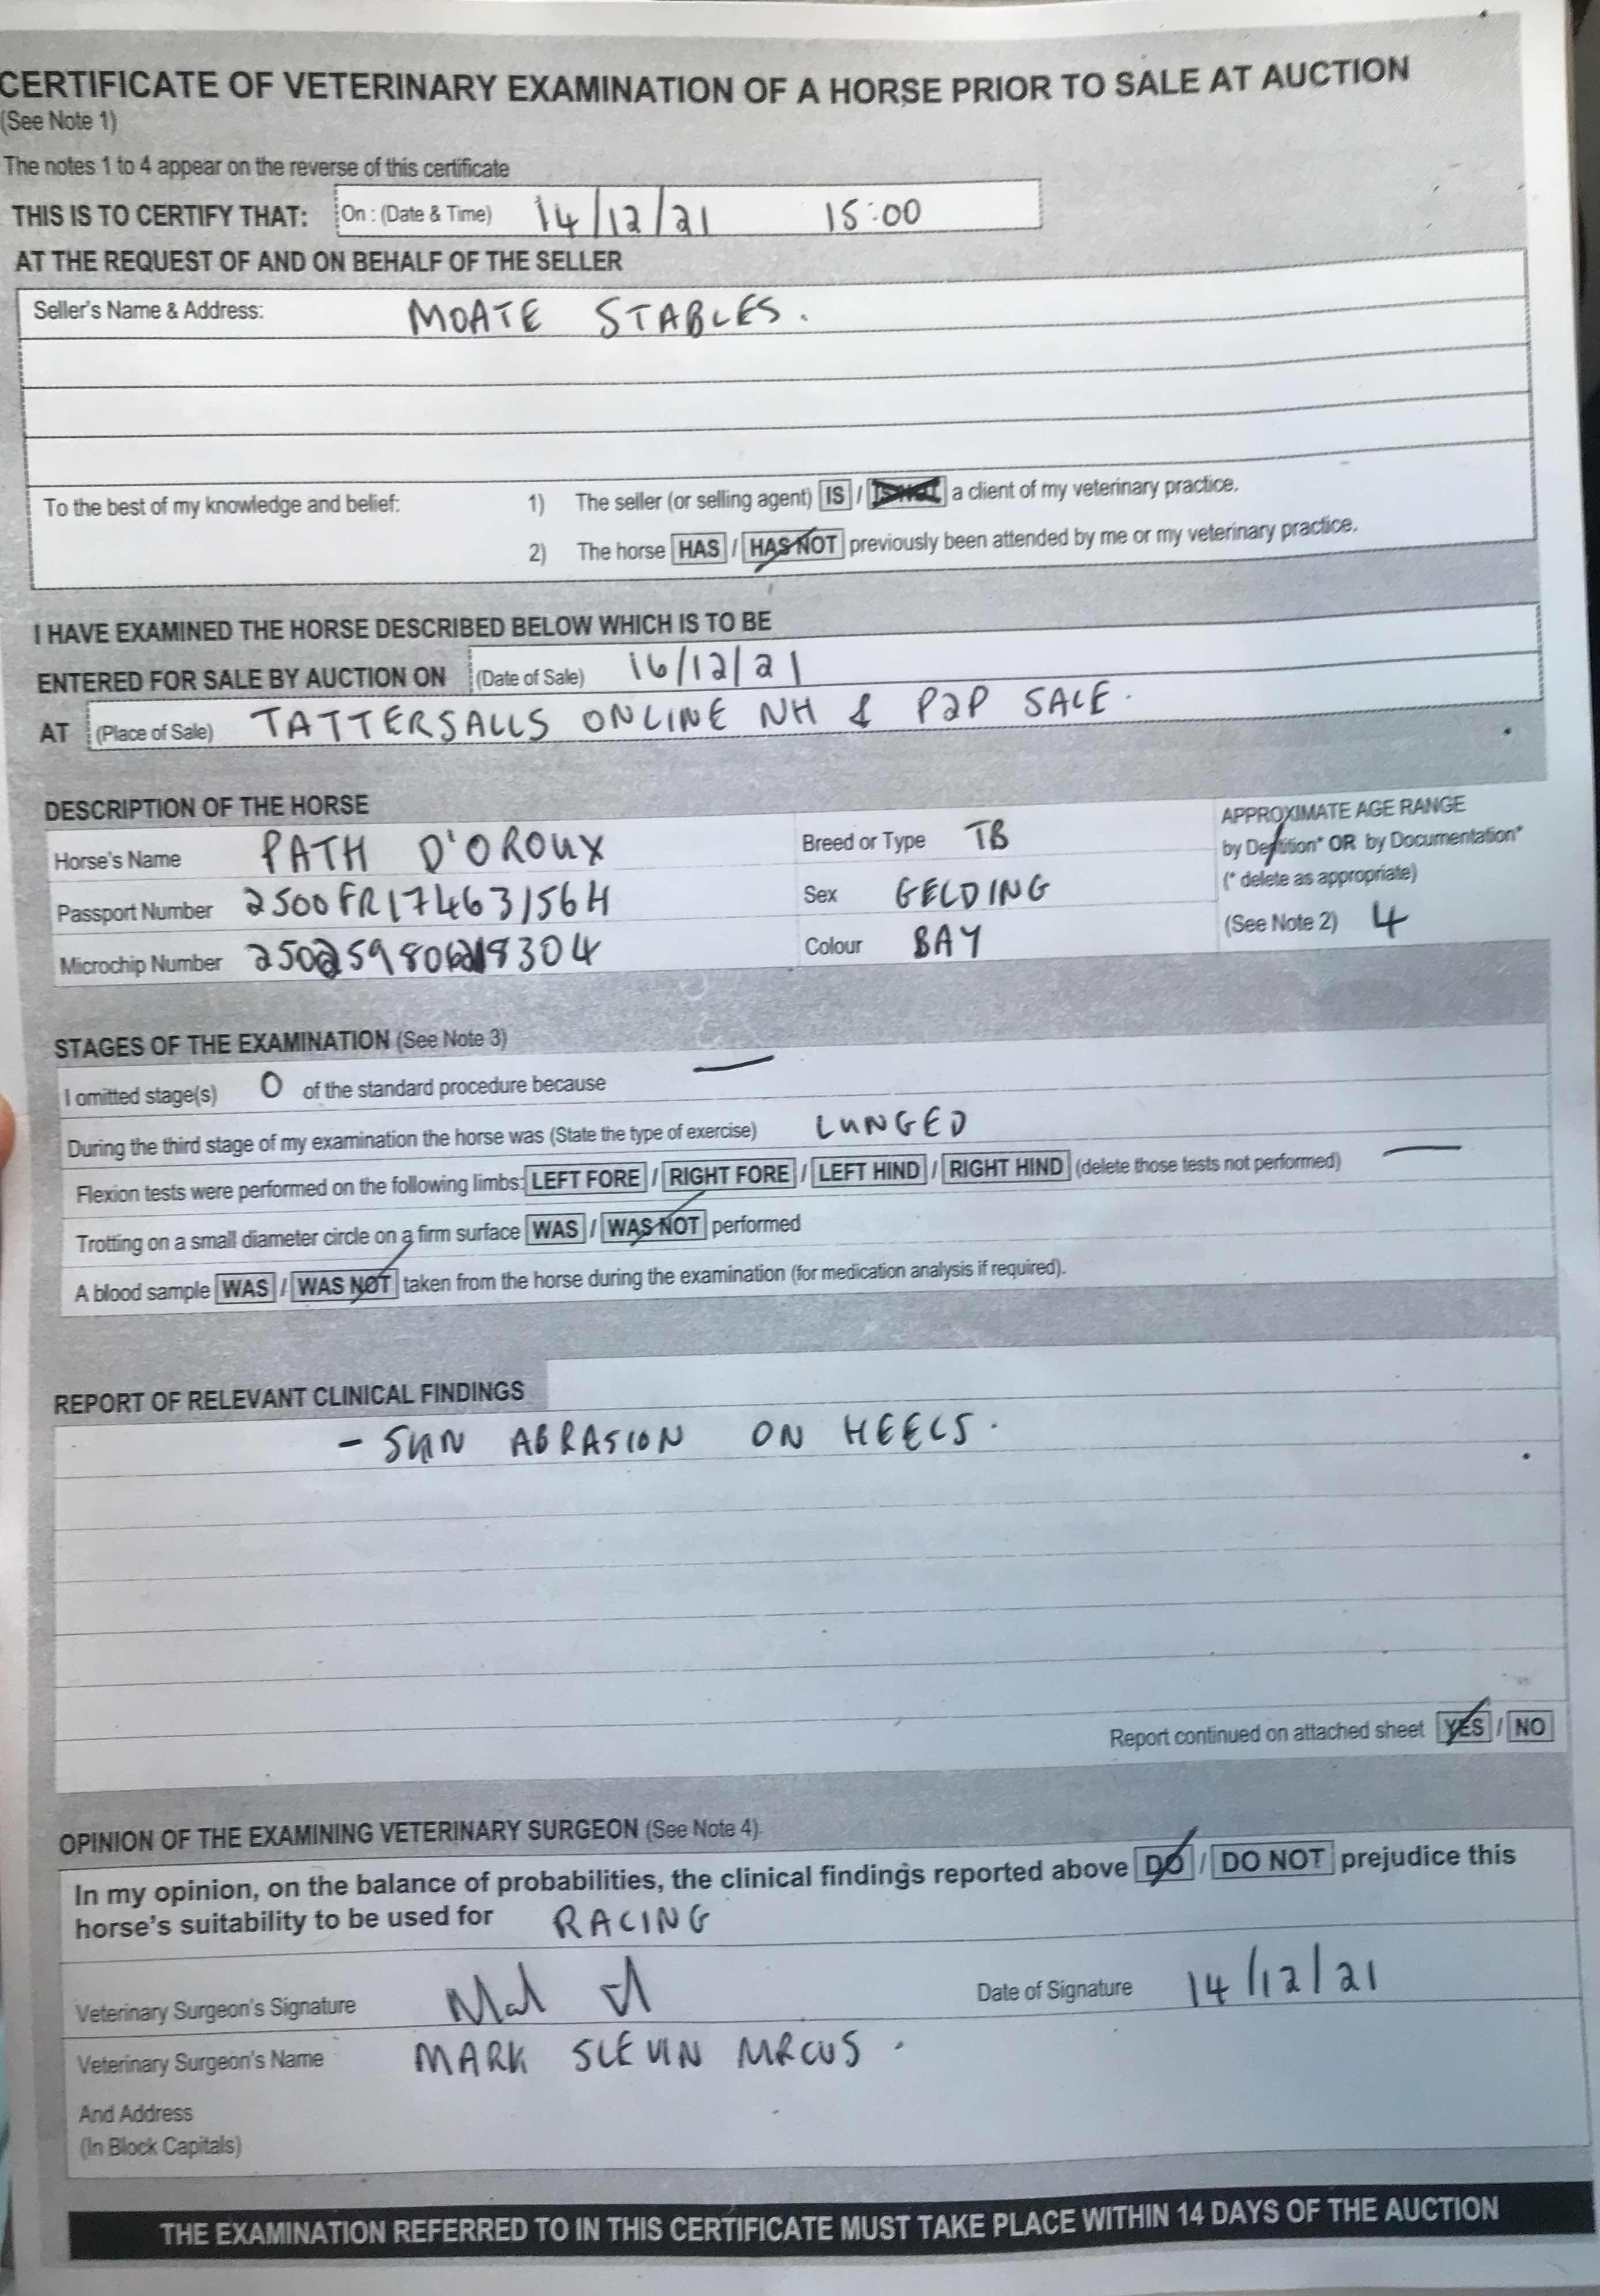 CERTIFICATE OF VETERINARY EXAMINATION OF A HORSE PRIOR TO SALE AT AUCTION
(See Note 1)
The notes 1 to 4 appear on the reverse of this certificate
THIS IS TO CERTIFY THAT: On : (Date & Time) 14/12/21 15:00
AT THE REQUEST OF AND ON BEHALF OF THE SELLER
Seller's Name & Address: MOATE STABLES.
To the best of my knowledge and belief: 1) The seller (or selling agent) IS / IS NOT a client of my veterinary practice.
2) The horse HAS / HAS NOT previously been attended by me or my veterinary practice.
I HAVE EXAMINED THE HORSE DESCRIBED BELOW WHICH IS TO BE
ENTERED FOR SALE BY AUCTION ON (Date of Sale) 16/12/21
AT (Place of Sale) TATTERSALLS ONLINE NH & P2P SALE.
DESCRIPTION OF THE HORSE
APPROXIMATE AGE RANGE
Horse's Name PATH D'OROUX Breed or Type TB by Dentition* OR by Documentation*
(* delete as appropriate)
Passport Number 2500FR17463156H Sex GELDING (See Note 2) 4
Microchip Number Colour BAY
STAGES OF THE EXAMINATION (See Note 3)
I omitted stage(s) 0 of the standard procedure because —
During the third stage of my examination the horse was (State the type of exercise) LUNGED
Flexion tests were performed on the following limbs: LEFT FORE / RIGHT FORE / LEFT HIND / RIGHT HIND (delete those tests not performed) —
Trotting on a small diameter circle on a firm surface WAS / WAS NOT performed
A blood sample WAS / WAS NOT taken from the horse during the examination (for medication analysis if required).
REPORT OF RELEVANT CLINICAL FINDINGS
- SKIN ABRASION ON HEELS.
Report continued on attached sheet YES / NO
OPINION OF THE EXAMINING VETERINARY SURGEON (See Note 4)
In my opinion, on the balance of probabilities, the clinical findings reported above DO / DO NOT prejudice this
horse's suitability to be used for RACING
Veterinary Surgeon's Signature Date of Signature 14/12/21
Veterinary Surgeon's Name MARK SLEVIN MRCVS.
And Address
(In Block Capitals)
THE EXAMINATION REFERRED TO IN THIS CERTIFICATE MUST TAKE PLACE WITHIN 14 DAYS OF THE AUCTION